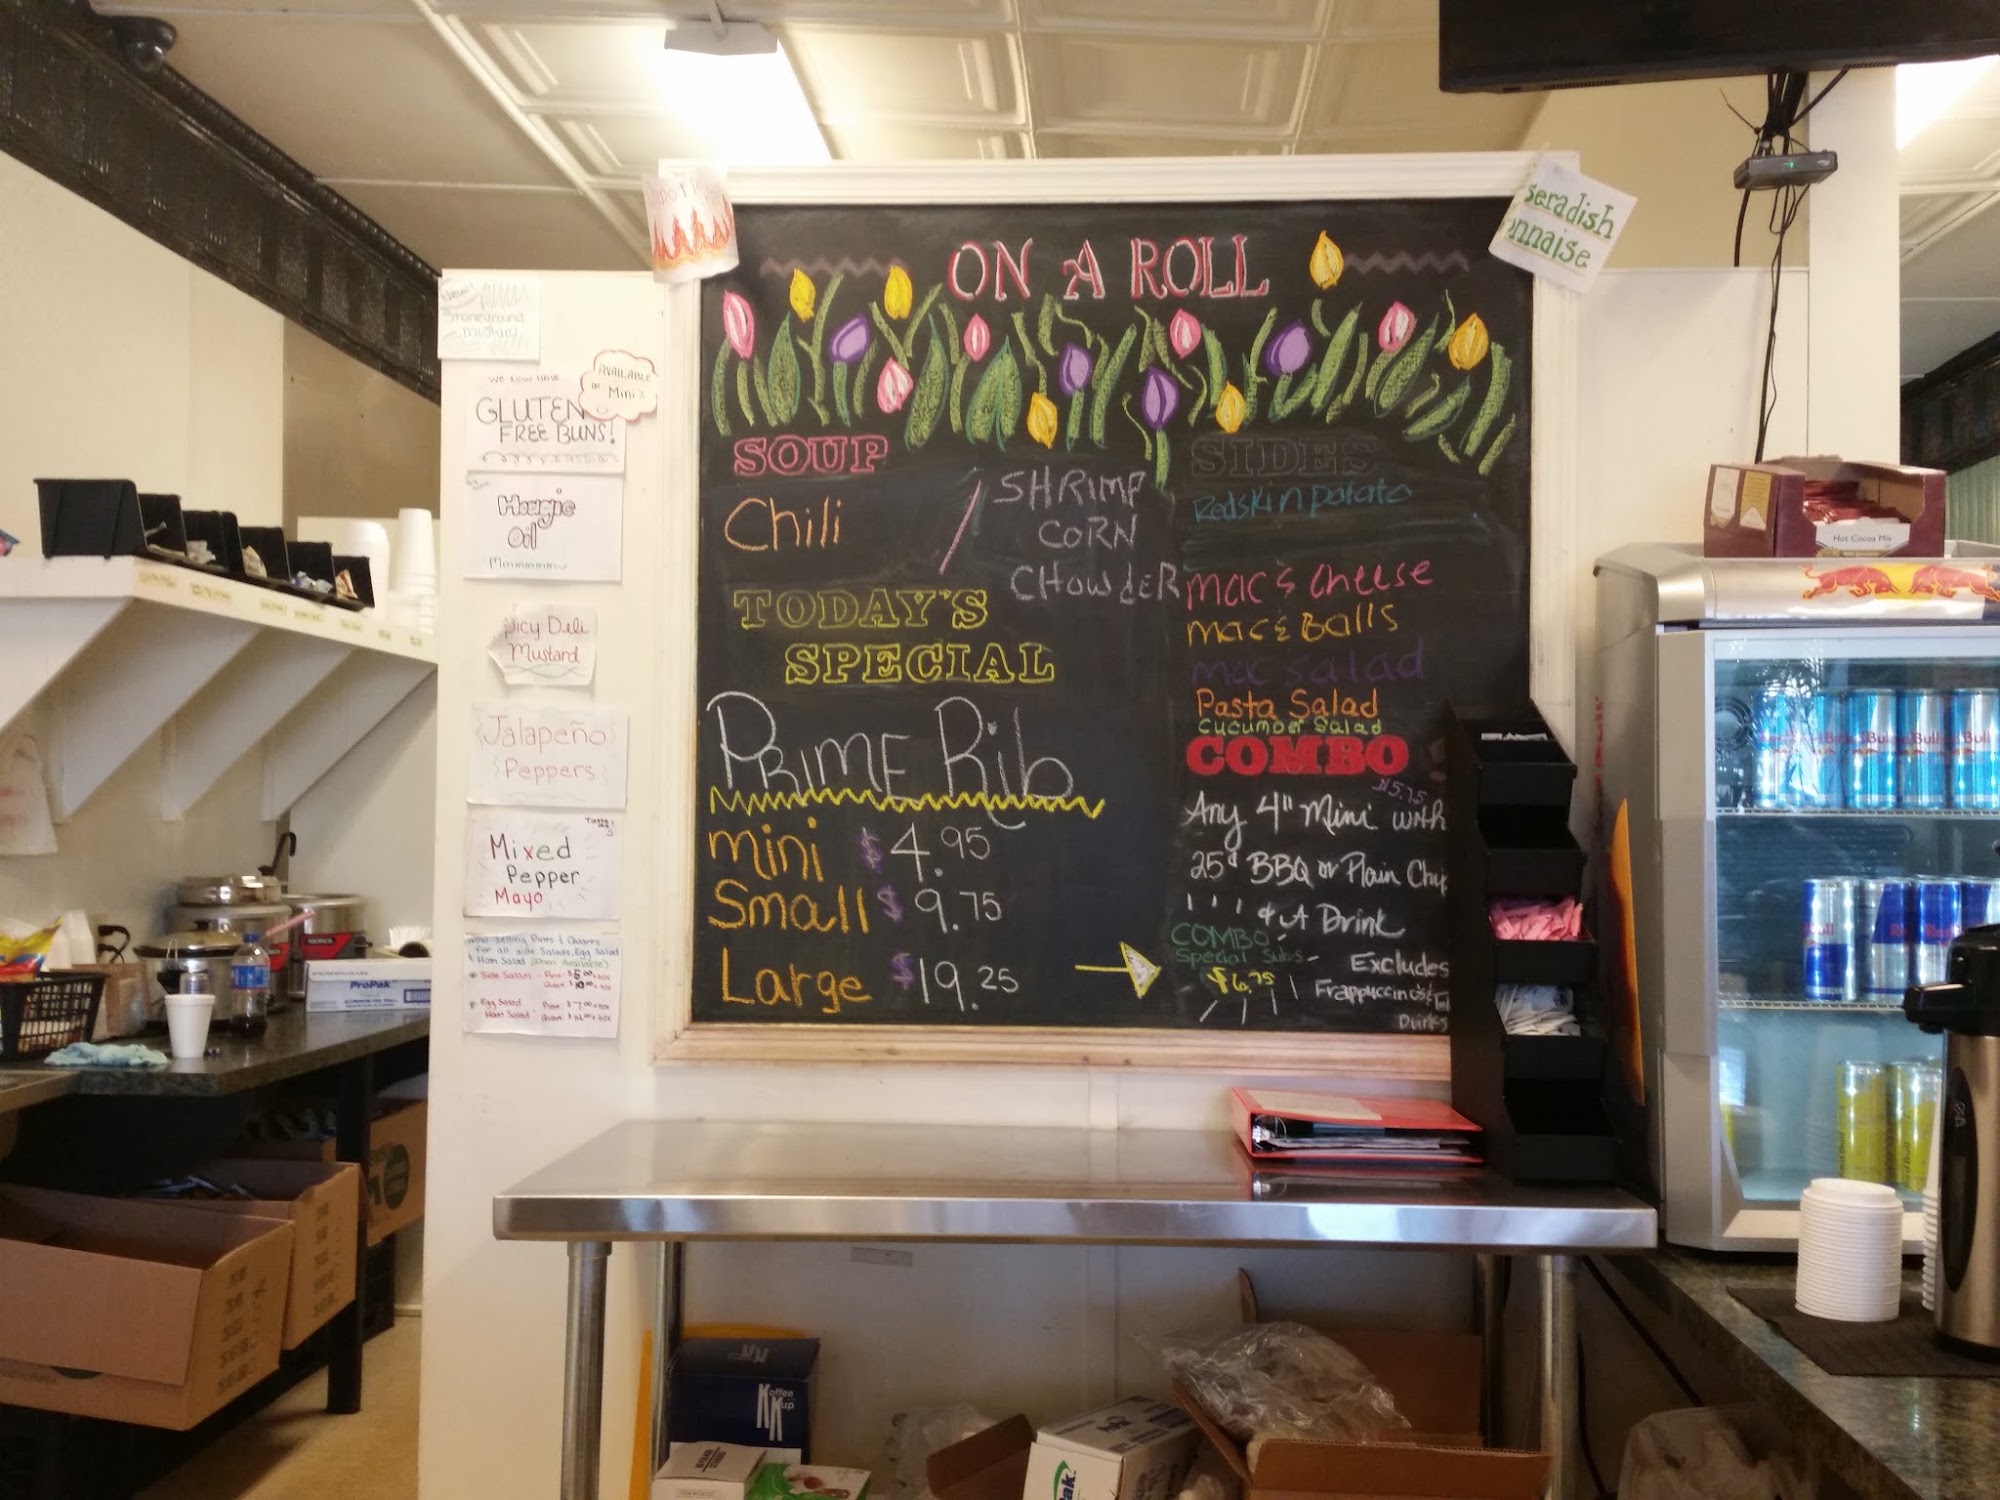 ON A ROLL
SOUP
Chili
SHRIMP
CORN
CHOWDER
TODAY'S
SPECIAL
PRIME Rib
mini $4.95
Small $9.75
Large $19.25
SIDES
Redskin potato
mac & cheese
mac & Balls
mac salad
Pasta Salad
Cucumber Salad
COMBO
$5.75
Any 4" Mini with
25¢ BBQ or Plain Chip
& A Drink
COMBO
Special Subs-
$6.75
Excludes
Frappuccino's &
Drinks
seradish
onnaise
New!
Stoneground
mustard
WE NOW HAVE
GLUTEN
FREE BUNS!
AVAILABLE
IN
Mini's
Hoagie
Oil
Mmmmmmm
picy Deli
Mustard
Jalapeño
Peppers
Mixed
Pepper
Mayo
Now Selling Pints & Quarts
for all side Salads, Egg Salad
& Ham Salad (when available)
Side Salads - Pint $5.00
Quart
Egg Salad Pint: $7.00
Ham Salad Quart:
ProPak
Hot Cocoa Mix
Red Bull
Koffee
Kup